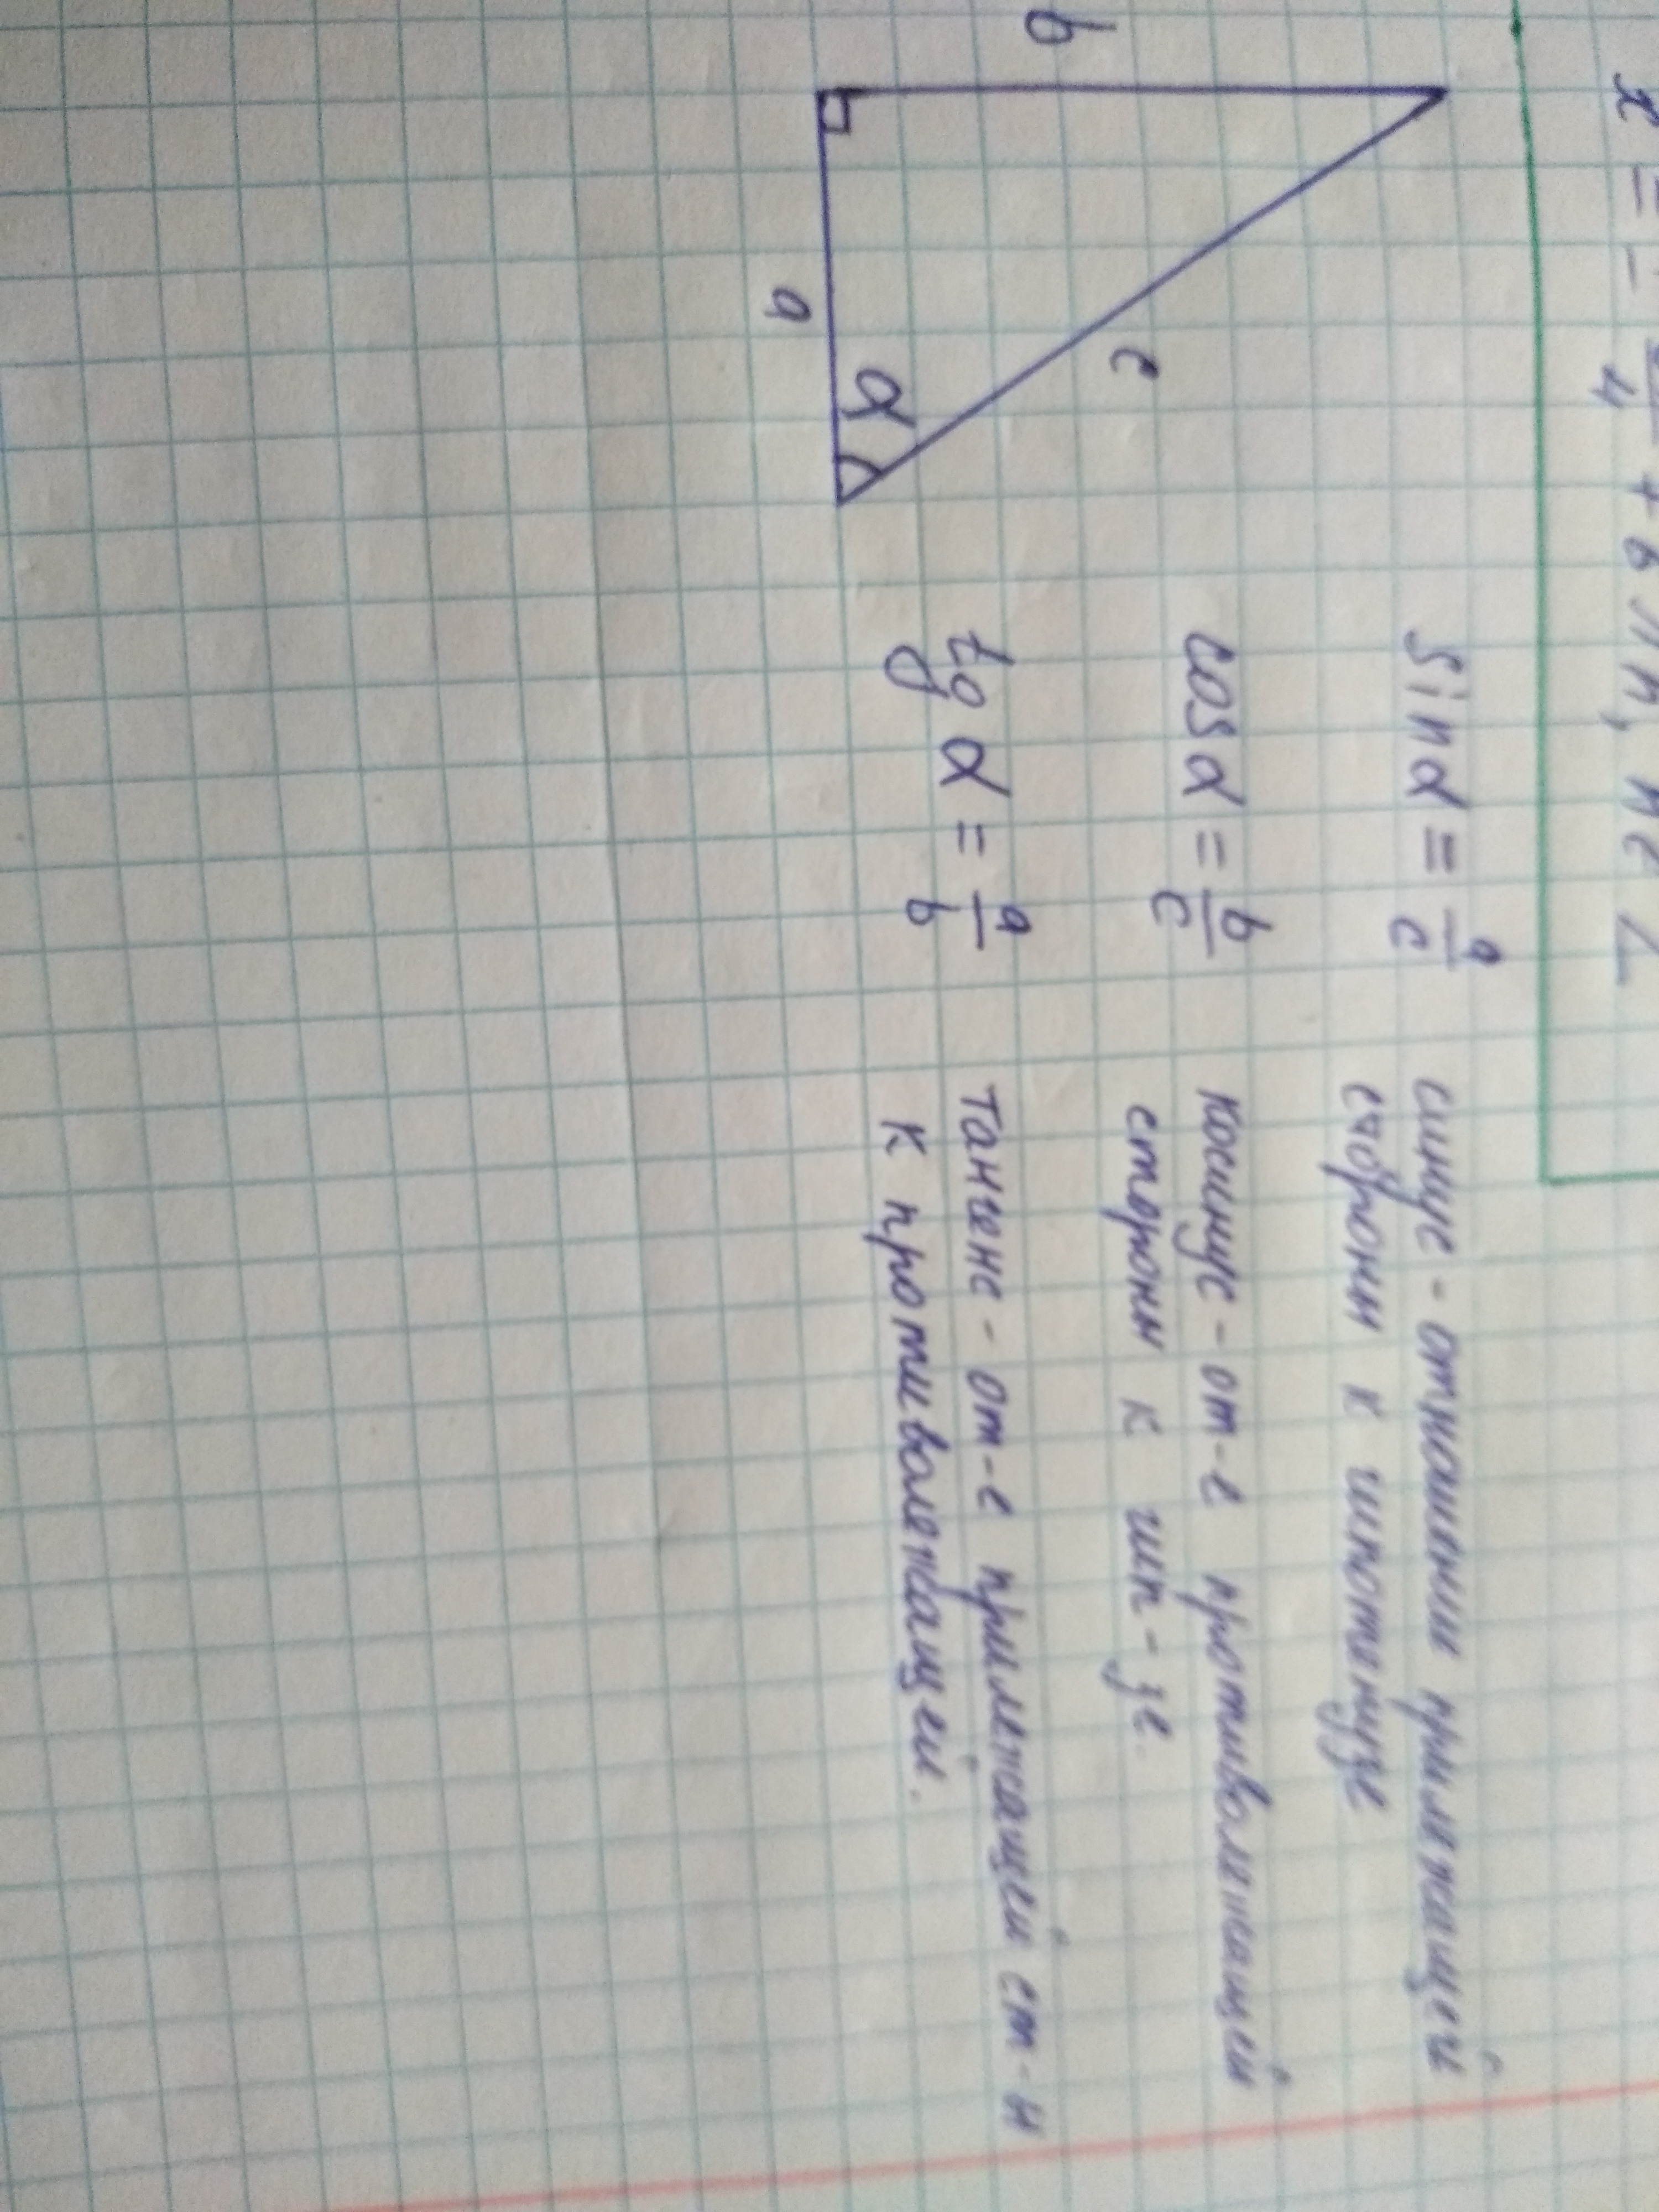 x = - π/4 + 6πn, n ∈ Z
b
c
α
a
sin α = a/c
синус - отношении прилежащей
стороны к гипотенузе
cos α = b/c
косинус - от-е противолежащей
стороны к гип-зе.
tg α = a/b
тангенс - от-е прилежащей ст-н
к противолежащей.